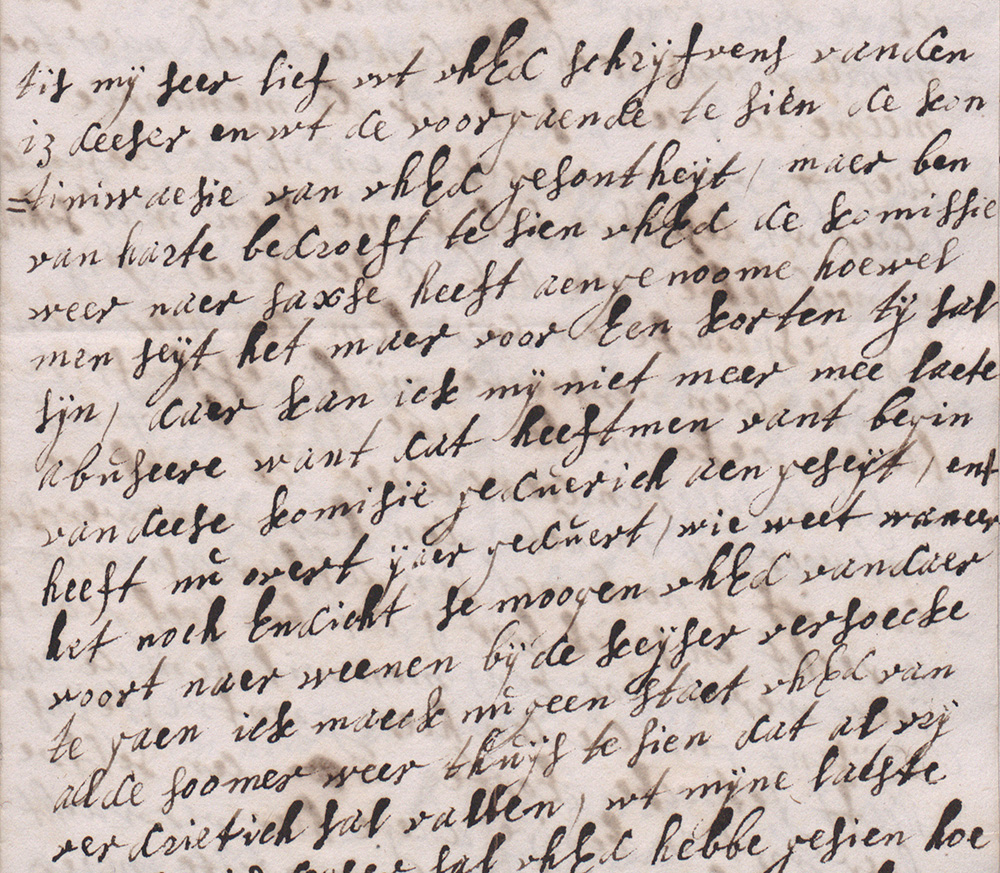 tis mÿ seer lief wt vhEd schrÿfvens vanden
13 deeser en wt de voorgaende te sien de kon
=tiniwaesie van vhEd gesontheÿt / maer ben
van harte bedroeft te sien vhEd de komissie
weer naer saxse heeft aengenoome hoewel
men seÿt het maer voor Een korten tÿ sal
sÿn / daer kan ick mÿ niet meer mee laete
abuseere want dat heeftmen vant begin
van deese komisië geduerich aengeseÿt / ent
heeft nu overt ÿaer geduert / wie weet waneer
het noch Endicht se moogen vhEd vandaer
voort naer weenen bÿ de keÿser versoecke
te gaen ick maeck nu geen staet vhEd van
al de soomer weer thuÿs te sien dat al vrÿ
verdrietich sal vallen / wt mÿne laeste
sal vhEd hebbe gesien hoe